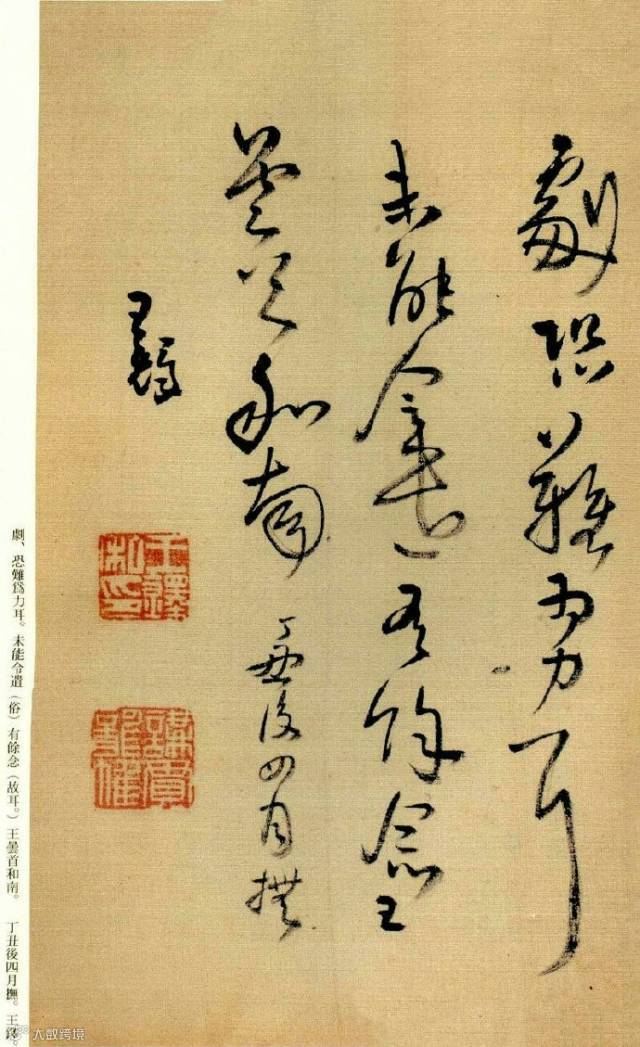 劇恐難為力耳
未能令遣有餘念王
曇首和南 丁丑後四月撫
王鐸
王鐸私印
劇、恐難爲力耳。未能令遣（俗）有餘念（故耳。）王曇首和南。 丁丑後四月撫。王鐸。
大数跨境